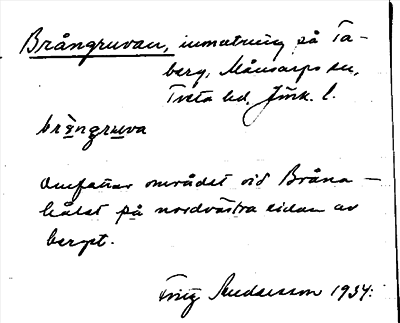 Brångruvan, inmutning på Ta-
berg, Månsarps sn,
Tveta hd, Jönk. l.
brångruva
Omfattar området vid Bråna-
hålet på nordvästra sidan av
berget.
Fritz 1934.